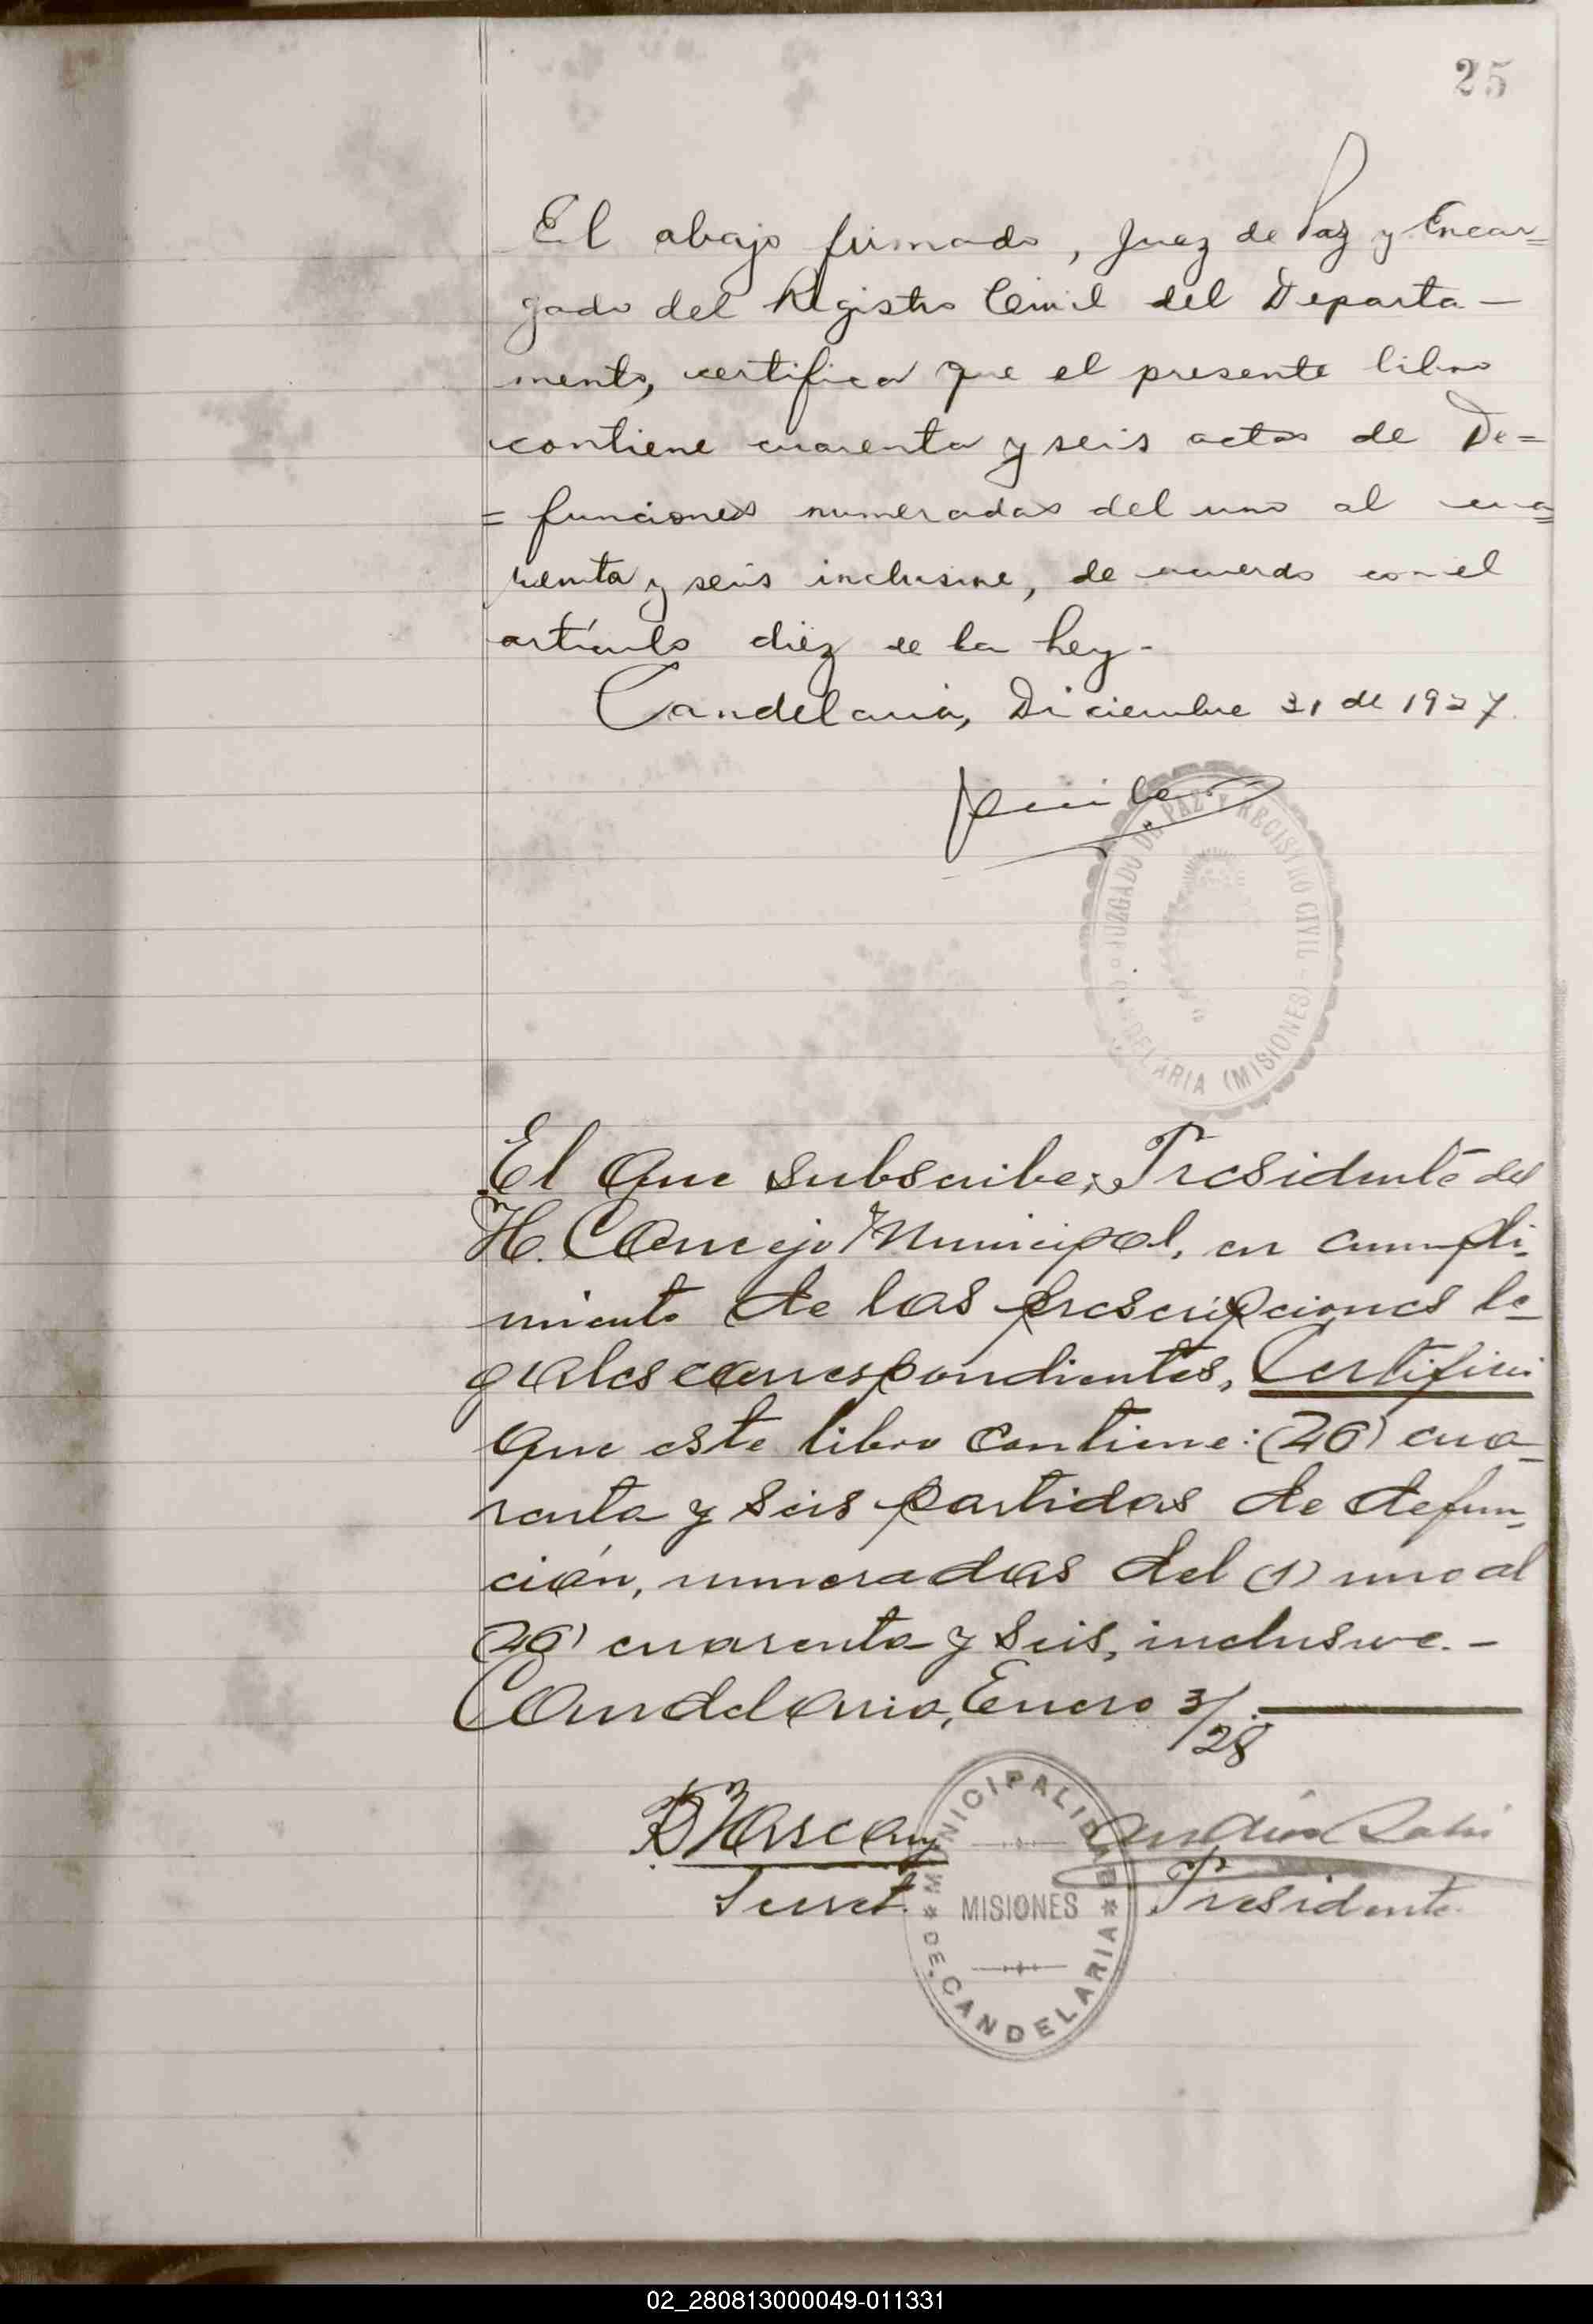 25
El abajo firmado, Juez de Paz y Encar=
gado del Registro Civil del Departa-
mento, certifica que el presente libro
contiene cuarenta y seis actas de De=
=funciones numeradas del uno al cua=
renta y seis inclusive, de acuerdo con el
artículo diez de la Ley.-
Candelaria, Diciembre 31 de 1927.
JUZGADO DE PAZ Y REGISTRO CIVIL
DELARIA (MISIONES)
El que subscribe, Presidente del
H. Concejo Municipal, en cumpli-
miento de las prescripciones le-
gales correspondientes, Certifica
que este libro contiene: (46) cua-
renta y seis partidas de defun-
ción, numeradas del (1) uno al
(46) cuarenta y seis, inclusive.-
Candelaria, Enero 3/28.
Secret.
Presidente.
MUNICIPALIDAD
MISIONES
* DE CANDELARIA *
02_280813000049-011331